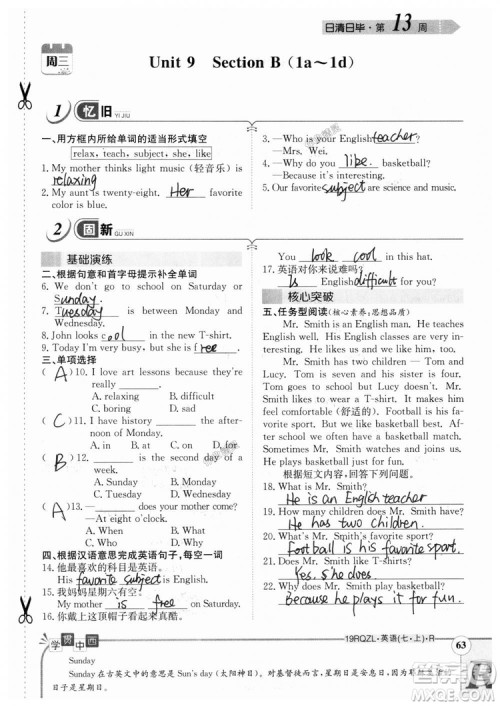 日清日毕·第13周
周三
Unit 9 Section B (1a～1d)
1 忆旧 YI JIU
一、用方框内所给单词的适当形式填空
relax, teach, subject, she, like
1. My mother thinks light music (轻音乐) is
relaxing.
2. My aunt is twenty-eight. Her favorite
color is blue.
3. —Who is your English teacher?
—Mrs. Wei.
4. —Why do you like basketball?
—Because it's interesting.
5. Our favorite subject are science and music.
2 固新 GU XIN
基础演练
二、根据句意和首字母提示补全单词
6. We don't go to school on Saturday or
Sunday.
7. Tuesday is between Monday and
Wednesday.
8. John looks cool in the new T-shirt.
9. Today I'm very busy, but she is free.
三、单项选择
( A )10. I love art lessons because they're
really ______.
A. relaxing B. difficult
C. boring D. sad
( C )11. I have history ______ the after-
noon of Monday.
A. in B. at C. on D. for
( B )12. ______ is the second day of a
week.
A. Sunday B. Monday
C. Tuesday D. Wednesday
( A )13. —______ do you have lunch?
—At eight o'clock.
A. When B. What
C. Who D. Where
四、根据汉语意思完成英语句子,每空一词
14. 他最喜欢的科目是英语。
His favorite subject is English.
15. 我妈妈星期六有空。
My mother is free on Saturday.
You look cool in this hat.
17. 英语对你来说难吗?
Is English difficult for you?
核心突破
五、任务型阅读(核心素养:思想品质)
Mr. Smith is an English man. He teaches
English well. His students like him very much.
Mr. Smith has two children — Tom and
Lucy. Tom is seven years old and Lucy is five.
Mr. Smith's favorite color is white. He
doesn't like T-shirts. But his wife likes T-shirts
because they are comfortable (舒适的). Football
is his favorite sport. But he also likes basketball.
He plays basketball every afternoon because it is
fun.
根据短文内容,回答下列问题。
18. What is Mr. Smith?
He is an English teacher
19. How many children does Mr. Smith have?
He has two children.
20. What is Mr. Smith's favorite sport?
Football is his favorite sport.
21. Does Mrs. Smith like T-shirts?
Yes. she does.
22. Why does Mr. Smith play basketball?
Because he plays it for fun.
学贯中西
19RQZL·英语(七·上)·R 63
Sunday
Sunday 在古英文中的意思是 Sun's day (太阳神日)。对基督徒而言,星期日是安息日,
日子是星期日。